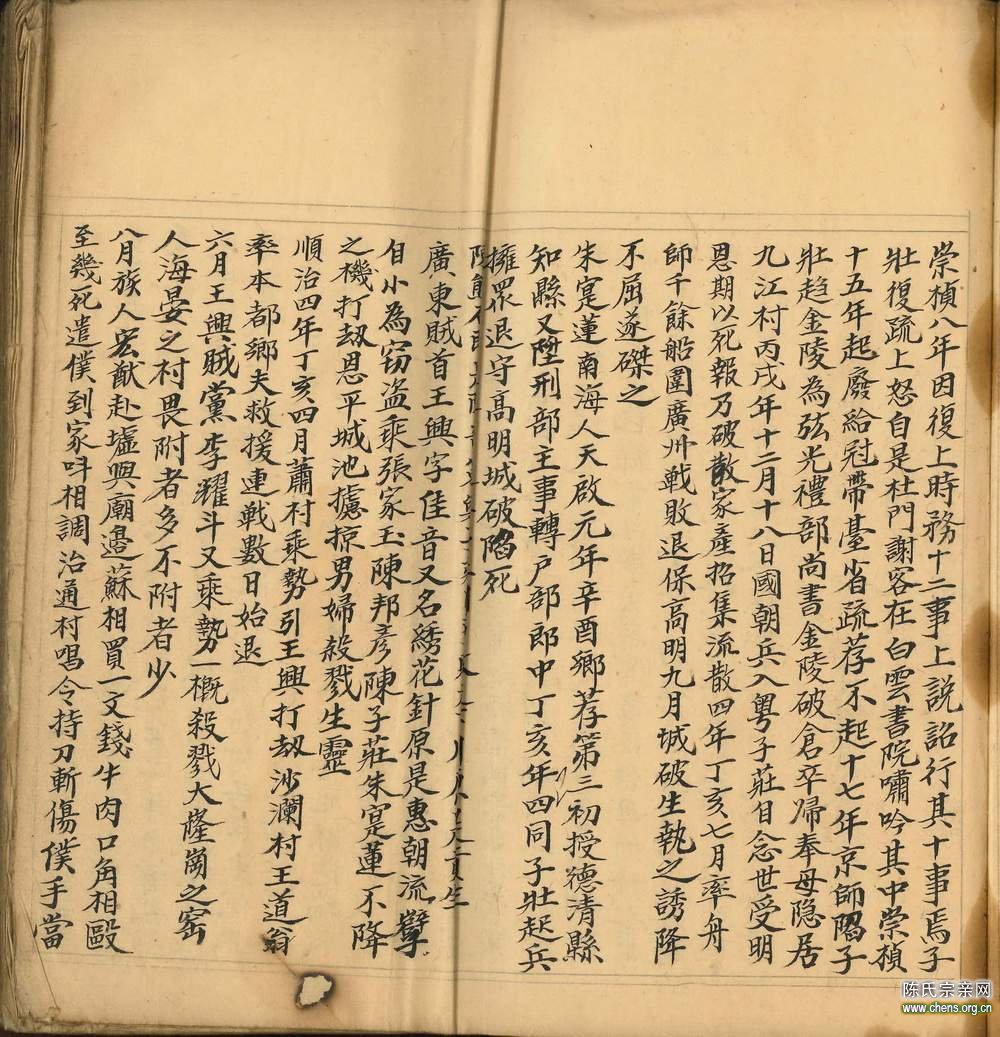 崇禎八年因復上時務十二事上説詔行其十事焉子
壯復疏上怒自是杜門謝客在白雲書院嘯吟其中崇禎
十五年起廢給冠帶臺省疏荐不起十七年京師陷子
壯趋金陵為弦光禮部尚書金陵破倉卒歸奉母隐居
九江村丙戌年十二月十八日國朝兵入粤子莊自念世受明
恩期以死報乃破散家產招集流散四年丁亥七月率舟
師千餘船圍廣州戦敗退保高明九月城破生執之誘降
不屈遂磔之
朱寔蓮南海人天啟元年辛酉鄉荐第三初授德清縣
知縣又陞刑部主事轉户部郎中丁亥年四同子壯起兵
擁眾退守高明城破陷死
廣東賊首王興字佳音又名綉花針原是惠朝流孽
自小為窃盗乘張家玉陳邦彦陳子莊朱寔蓮不降
之機打刼恩平城池擄掠男婦殺戮生靈
順治四年丁亥四月蕭村乘勢引王興打刼沙瀾村王道翁
率本都鄉夫救援連戦數日始退
六月王興賊黨李耀斗又乘勢一概殺戮大隆崗之
人海晏之村畏附者多不附者少
八月族人宏猷赴墟興廟邉蘇相買一文錢牛肉口角相毆
至幾死遣僕到家呌相調治通村唱令持刀斬傷僕手當
陈氏宗亲网
www.chens.org.cn